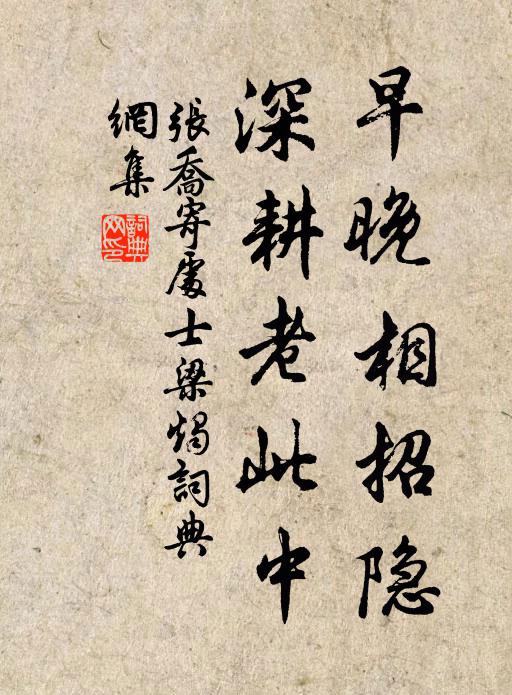 早晚相招隐
深耕老此中
張喬寄處士梁燭詞典
網集
詞典
网印